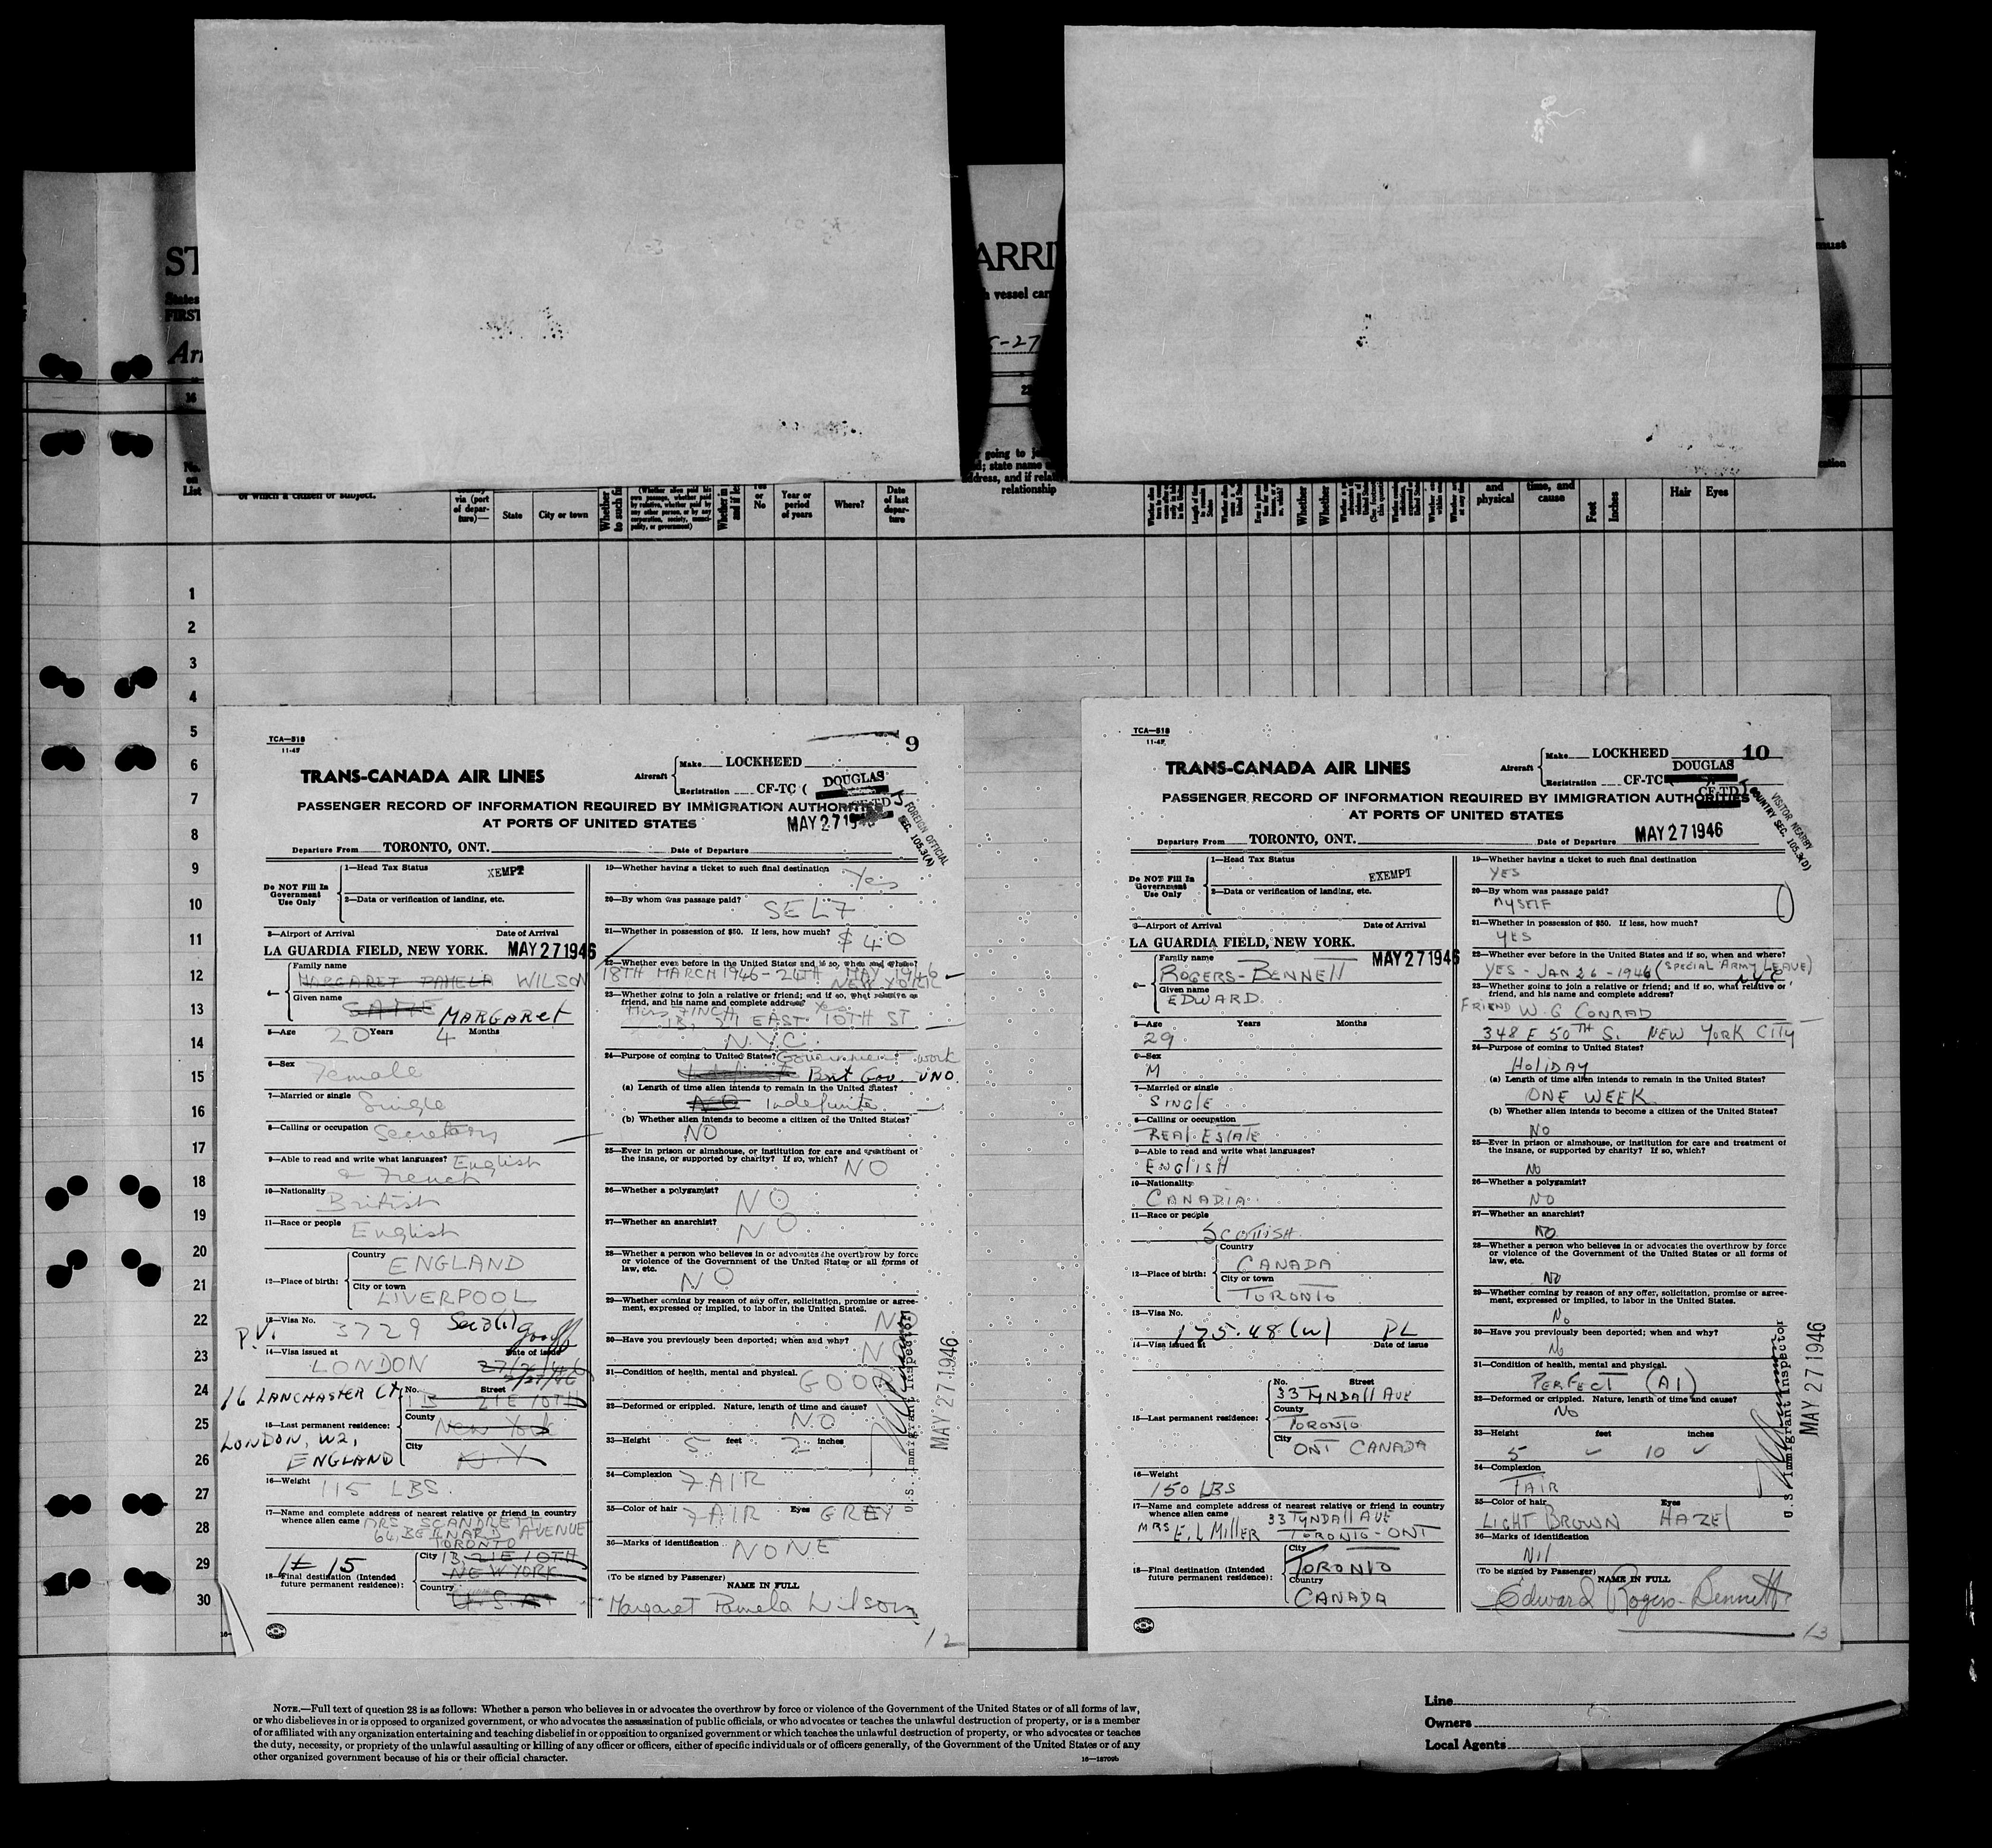 ST
ARRI
must
States
h vessel car
FIRST
Arr
5-27
16
No.
on
List
of which a citizen or subject.
via (port
of depar-
ture)—
State
City or town
(Whether alien paid his
own passage, whether paid
by relative, whether paid by
any other person, or by any
corporation, society, munici-
pality, or government)
Yes
or
No
Year or
period
of years
Where?
Date
of last
depar-
ture
going to jo
d; state name
ddress, and if rela
relationship
Whether
Whether
and
physical
time, and
cause
Feet
Inches
Hair
Eyes
1
2
3
4
5
6
7
8
9
10
11
12
13
14
15
16
17
18
19
20
21
22
23
24
25
26
27
28
29
30
TCA—818
11-45
9
TRANS-CANADA AIR LINES
Aircraft
Make LOCKHEED
Registration CF-TC (
DOUGLAS
CF-TD
PASSENGER RECORD OF INFORMATION REQUIRED BY IMMIGRATION AUTHORITIES
AT PORTS OF UNITED STATES
MAY 27 1946
FOREIGN OFFICIAL
SEC. 105.3(A)
Departure From TORONTO, ONT.
Date of Departure
Do NOT Fill In
Government
Use Only
1—Head Tax Status
XEMPT
2—Data or verification of landing, etc.
3—Airport of Arrival
Date of Arrival
LA GUARDIA FIELD, NEW YORK. MAY 27 1946
4—
Family name
MARGARET PAMELA WILSON
Given name
MARGARET
5—Age 20 Years 4 Months
6—Sex
Female
7—Married or single Single
8—Calling or occupation Secretary
9—Able to read and write what languages? English
& French
10—Nationality
British
11—Race or people
English
12—Place of birth:
Country
ENGLAND
City or town
LIVERPOOL
P.V.
13—Visa No. 3729 Sec 3(1)
14—Visa issued at
Date of issue
LONDON
2/27/46
16 LANCHASTER CT
LONDON, W2,
ENGLAND
15—Last permanent residence:
No. Street
1B 21E 10TH
County
New York
City
N.Y
16—Weight
115 LBS.
17—Name and complete address of nearest relative or friend in country
whence alien came MRS SCANDRETT
64, BERNARD AVENUE
TORONTO
1# 15
18—Final destination (Intended
future permanent residence):
City 1B, 21E 10TH
NEW YORK
Country
U.S.A.
19—Whether having a ticket to such final destination
Yes
20—By whom was passage paid?
SELF
21—Whether in possession of $50. If less, how much? $40
22—Whether ever before in the United States and if so, when and where?
18TH MARCH 1946 - 24TH MAY 1946
NEW YORK
23—Whether going to join a relative or friend; and if so, what relative or
friend, and his name and complete address? Yes
Mrs FINCH
1B, 21 EAST 10TH ST
N.Y.C.
24—Purpose of coming to United States? Government work
Brit Gov. UNO.
(a) Length of time alien intends to remain in the United States?
NO Indefinite
(b) Whether alien intends to become a citizen of the United States?
NO
25—Ever in prison or almshouse, or institution for care and treatment of
the insane, or supported by charity? If so, which? NO
26—Whether a polygamist? NO
27—Whether an anarchist? NO
28—Whether a person who believes in or advocates the overthrow by force
or violence of the Government of the United States or all forms of
law, etc.
NO
29—Whether coming by reason of any offer, solicitation, promise or agree-
ment, expressed or implied, to labor in the United States.
NO
30—Have you previously been deported; when and why?
NO
31—Condition of health, mental and physical. GOOD
32—Deformed or crippled. Nature, length of time and cause?
NO
33—Height 5 feet 2 inches
34—Complexion FAIR
35—Color of hair FAIR Eyes GREY
36—Marks of identification NONE
(To be signed by Passenger)
NAME IN FULL
Margaret Pamela Wilson
U.S. Immigrant Inspector
MAY 27 1946
12
TCA—818
11-45
10
TRANS-CANADA AIR LINES
Aircraft
Make LOCKHEED
DOUGLAS
Registration CF-TC
CF-TD
PASSENGER RECORD OF INFORMATION REQUIRED BY IMMIGRATION AUTHORITIES
AT PORTS OF UNITED STATES
VISITOR NEARBY
COUNTRY SEC. 105.3(D)
MAY 27 1946
Departure From TORONTO, ONT.
Date of Departure
Do NOT Fill In
Government
Use Only
1—Head Tax Status
EXEMPT
2—Data or verification of landing, etc.
3—Airport of Arrival
Date of Arrival
LA GUARDIA FIELD, NEW YORK.
MAY 27 1946
4—
Family name
ROGERS-BENNETT
Given name
EDWARD
5—Age Years Months
29
6—Sex
M
7—Married or single
SINGLE
8—Calling or occupation
REAL ESTATE
9—Able to read and write what languages?
ENGLISH
10—Nationality
CANADIA
11—Race or people
SCOTTISH
12—Place of birth:
Country
CANADA
City or town
TORONTO
13—Visa No.
175.48 (W) PL
14—Visa issued at
Date of issue
15—Last permanent residence:
No. Street
33 TYNDALL AVE
County
TORONTO
City
ONT CANADA
16—Weight
150 LBS
17—Name and complete address of nearest relative or friend in country
whence alien came 33 TYNDALL AVE
MRS E. L MILLER TORONTO - ONT
18—Final destination (Intended
future permanent residence):
City
TORONTO
Country
CANADA
19—Whether having a ticket to such final destination
YES
20—By whom was passage paid?
MYSELF
21—Whether in possession of $50. If less, how much?
YES
22—Whether ever before in the United States and if so, when and where?
YES - JAN 26 - 1946 (SPECIAL ARMY LEAVE)
NYC
23—Whether going to join a relative or friend; and if so, what relative or
friend, and his name and complete address?
FRIEND W. G CONRAD
348 E 50TH S. NEW YORK CITY
24—Purpose of coming to United States?
HOLIDAY
(a) Length of time alien intends to remain in the United States?
ONE WEEK
(b) Whether alien intends to become a citizen of the United States?
NO
25—Ever in prison or almshouse, or institution for care and treatment of
the insane, or supported by charity? If so, which?
NO
26—Whether a polygamist?
NO
27—Whether an anarchist?
NO
28—Whether a person who believes in or advocates the overthrow by force
or violence of the Government of the United States or all forms of
law, etc.
NO
29—Whether coming by reason of any offer, solicitation, promise or agree-
ment, expressed or implied, to labor in the United States.
NO
30—Have you previously been deported; when and why?
NO
31—Condition of health, mental and physical.
PERFECT (A1)
32—Deformed or crippled. Nature, length of time and cause?
NO
33—Height feet inches
5 10
34—Complexion
FAIR
35—Color of hair Eyes
LIGHT BROWN HAZEL
36—Marks of identification
Nil
(To be signed by Passenger)
NAME IN FULL
Edward Rogers-Bennett
U.S Immigrant Inspector
MAY 27 1946
13
NOTE.—Full text of question 28 is as follows: Whether a person who believes in or advocates the overthrow by force or violence of the Government of the United States or of all forms of law,
or who disbelieves in or is opposed to organized government, or who advocates the assassination of public officials, or who advocates or teaches the unlawful destruction of property, or is a member
of or affiliated with any organization entertaining and teaching disbelief in or opposition to organized government or which teaches the unlawful destruction of property, or who advocates or teaches
the duty, necessity, or propriety of the unlawful assaulting or killing of any officer or officers, either of specific individuals or of officers generally, of the Government of the United States or of any
other organized government because of his or their official character.
16—18709b
Line
Owners
Local Agents